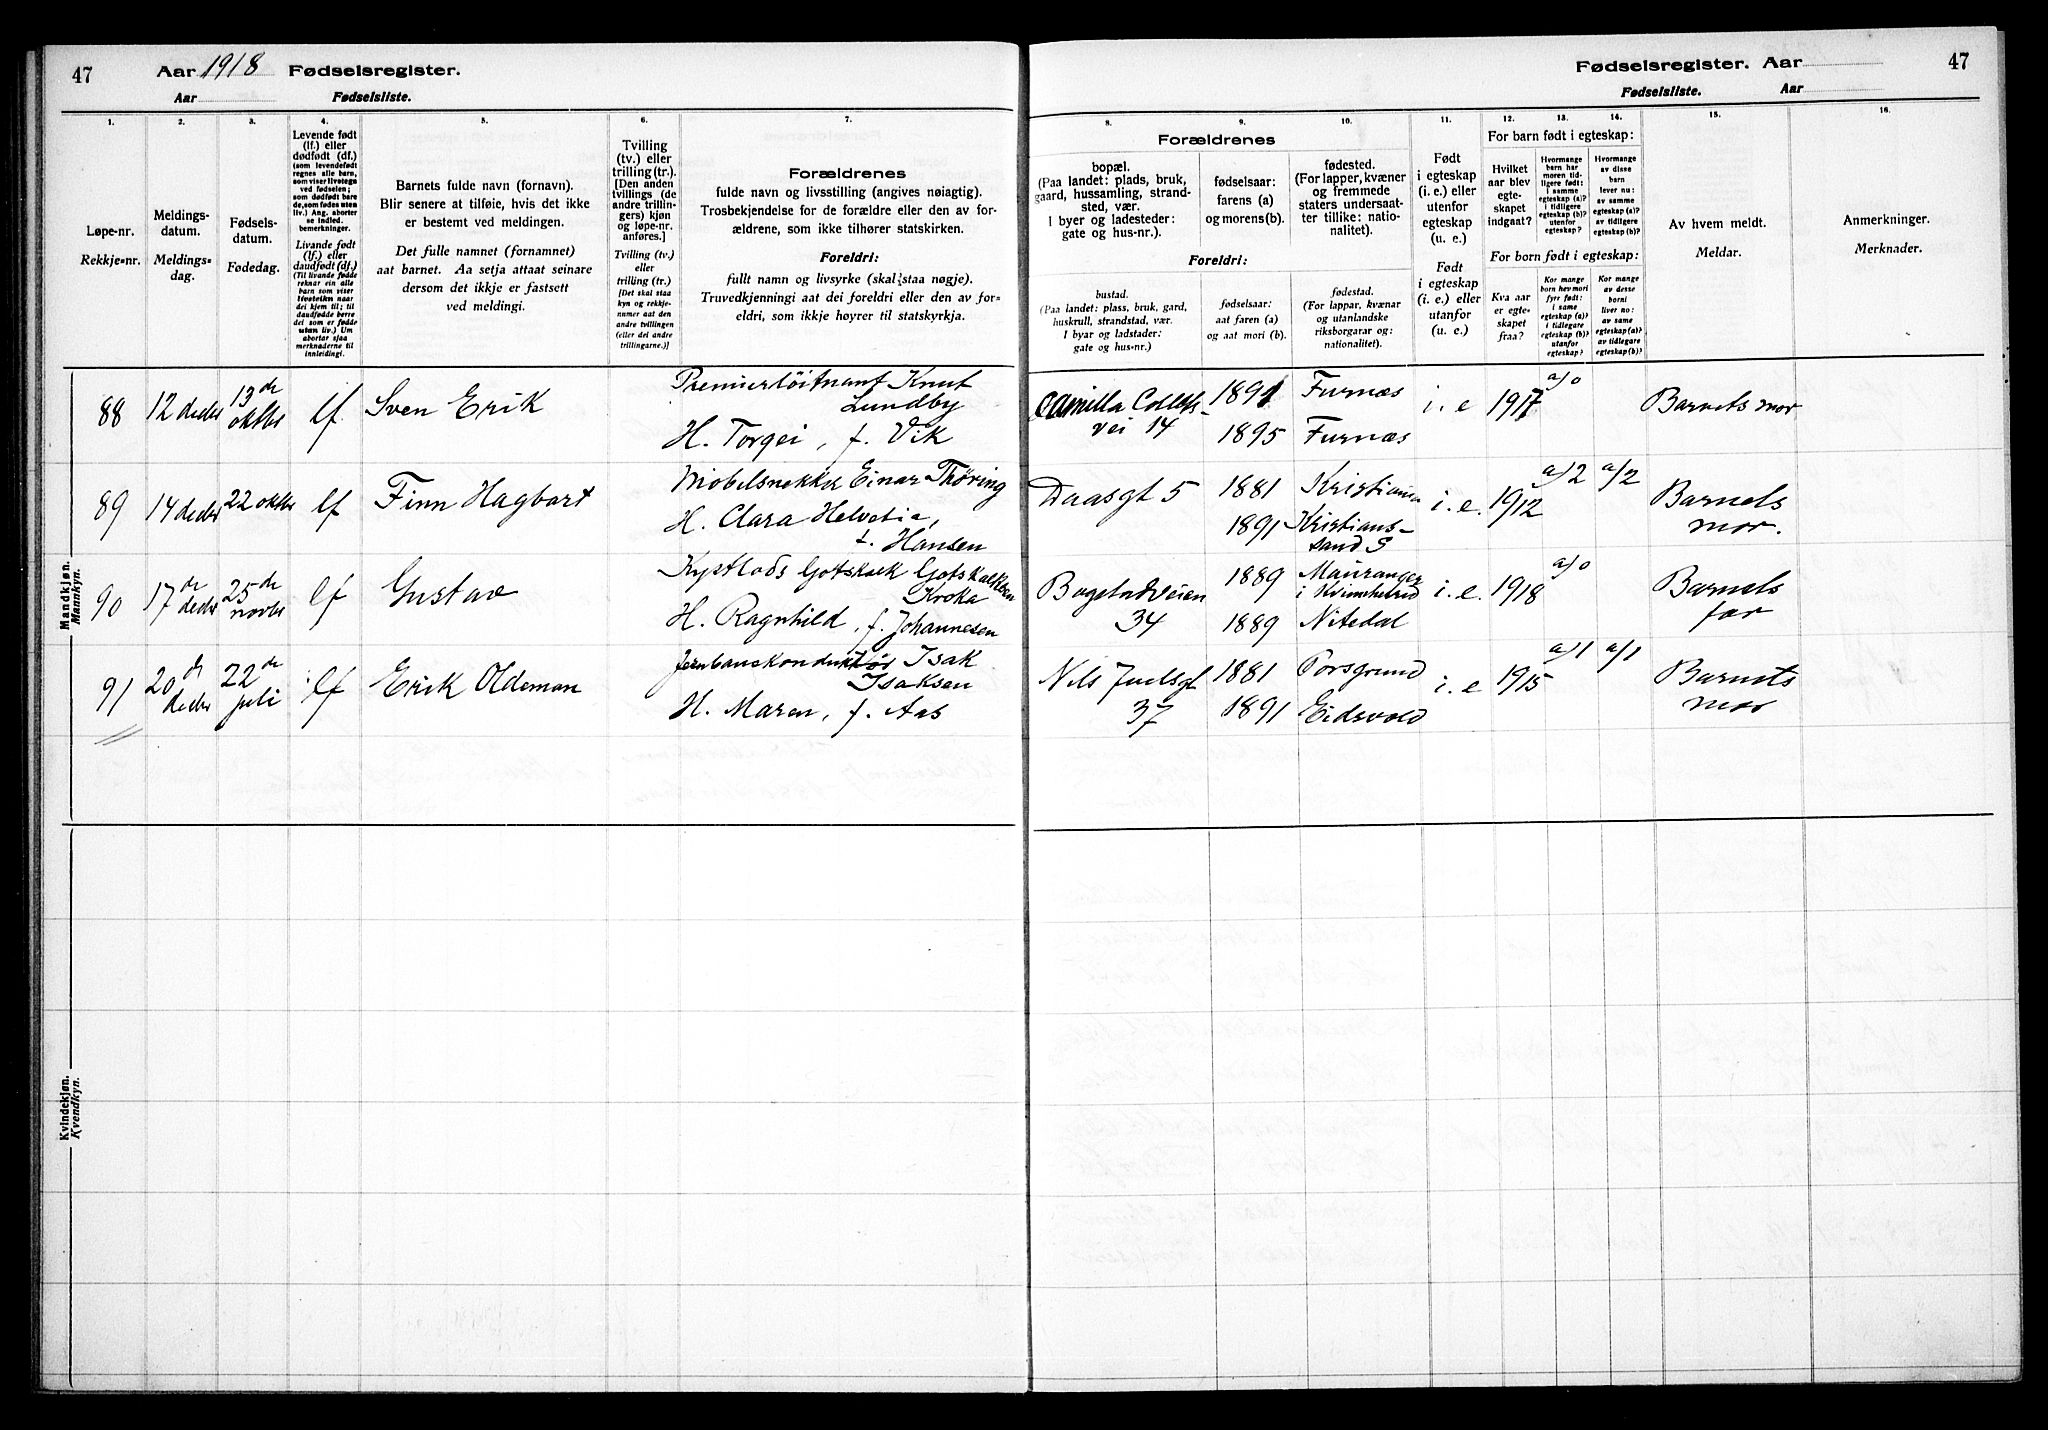 47
Aar 1918 Fødselsregister.
Aar Fødselsliste.
1.
2.
3.
4.
5.
6.
7.
Løpe-nr.
Rekkje-nr.
Meldings-
datum.
Meldings-
dag.
Fødsels-
datum.
Fødedag.
Levende født
(lf.) eller
dødfødt (df.)
(som levendefødt
regnes alle barn,
som viser livstegn
ved fødselen;
som dødfødt bar-
de, som fødes uten
liv.) Ang. aborter
se indled.
bemerkninger.
Livande født
(lf.) eller
daudfødt (df.)
(Til livande fødde
reknar ein alle
barn som viser
livsteikn naar
dei kjem til; til
daudfødde berre
dei som er fødde
utan liv.) Um
abortar sjaa
merknaderne til
innleidingi.
Barnets fulde navn (fornavn).
Blir senere at tilføie, hvis det ikke
er bestemt ved meldingen.
Det fulle namnet (fornamnet)
aat barnet. Aa setja attaat seinare
dersom det ikkje er fastsett
ved meldingi.
Tvilling
(tv.) eller
trilling (tr.).
[Den anden
tvillings (de
andre trillin-
gers) kjøn
og løpe-nr.
anføres.]
Tvilling (tv.)
eller
trilling (tr.)
[Det skal staa
kyn og rekkje-
numer aat den
andre tvillingen
(eller dei andre
trillingarne.)]
Forældrenes
fulde navn og livsstilling (angives nøiagtig).
Trosbekjendelse for de forældre eller den av for-
ældrene, som ikke tilhører statskirken.
Foreldri:
fullt namn og livsyrke (skal staa nøgje).
Truvedkjenningi aat dei foreldri eller den av for-
eldri, som ikkje høyrer til statskyrkja.
Mandkjøn.
Mannkyn.
88 12 decbr 13de oktbr lf Sven Erik Premierløitnant Knut
Lundby
H. Torgei, f. Vik
89 14 decbr 22 oktbr lf Finn Hagbart Møbelsnekker Einar Thøring
H. Clara Helvetia,
f. Hansen
90 17de decbr 25de novbr lf Gustav Kystlods Gotskalk Gotskalksen
Kroka
H. Ragnhild, f. Johannesen
91 20de decbr 22de juli lf Erik Oldeman Jernbanekonduktør Isak
Isaksen
H. Maren, f. Aas
Kvindekjøn.
Kvendkyn.
Fødselsregister. Aar
47
Fødselsliste. Aar
8.
9.
10.
11.
12.
13.
14.
15.
16.
Forældrenes
bopæl.
(Paa landet: plads, bruk,
gaard, hussamling, strand-
sted, vær.
I byer og ladesteder:
gate og hus-nr.).
fødselsaar:
farens (a)
og morens (b).
fødested.
(For lapper, kvæner
og fremmede
staters undersaat-
ter tillike: natio-
nalitet).
Foreldri:
bustad.
(Paa landet: plass, bruk, gard,
huskrull, strandstad, vær.
I byar og ladstader:
gate og hus-nr.)
fødselsaar:
aat faren (a)
og aat mori (b).
fødestad.
(For lappar, kvænar
og utanlandske
riksborgarar og:
nationalitet).
Født
i egteskap
(i. e.) eller
utenfor
egteskap
(u. e.)
Født
i egteskap
(i. e.) eller
utanfor
(u. e.).
For barn født i egteskap:
Hvilket
aar blev
egte-
skapet
indgaat?
Hvormange
barn har
moren tid-
ligere født:
i samme
egteskap (a)?
i tidligere
egteskap (b)?
utenfor
egteskap?
Hvormange
av disse
barn
lever nu:
av samme
egteskap (a)?
av tidligere
egteskap (b)?
For born født i egteskap:
Kva aar
er egte-
skapet
fraa?
Kor mange
born hev mori
fyrr født:
i same
egteskap (a)?
i tidlegare
egteskap (b)?
utanfor
egteskap?
Kor mange
av desse
borni
liver no:
av same
egteskap (a)?
av tidlegare
egteskap (b)?
Av hvem meldt.
Meldar.
Anmerkninger.
Merknader.
Camilla Colletts
vei 14 1891 Furnæs i. e 1917 a/0 Barnets mor
1895 Furnæs
Daasgt 5 1881 Kristiania i. e. 1912 a/2 a/2 Barnets
mor.
1891 Kristians-
sand S
Bogstadveien
34 1889 Mauranger
i Kvinnherred i. e. 1918 a/0 Barnets
far
1889 Nitedal
Nils Juelsgt
37 1881 Porsgrund i. e 1915 a/1 a/1 Barnets
mor
1891 Eidsvold